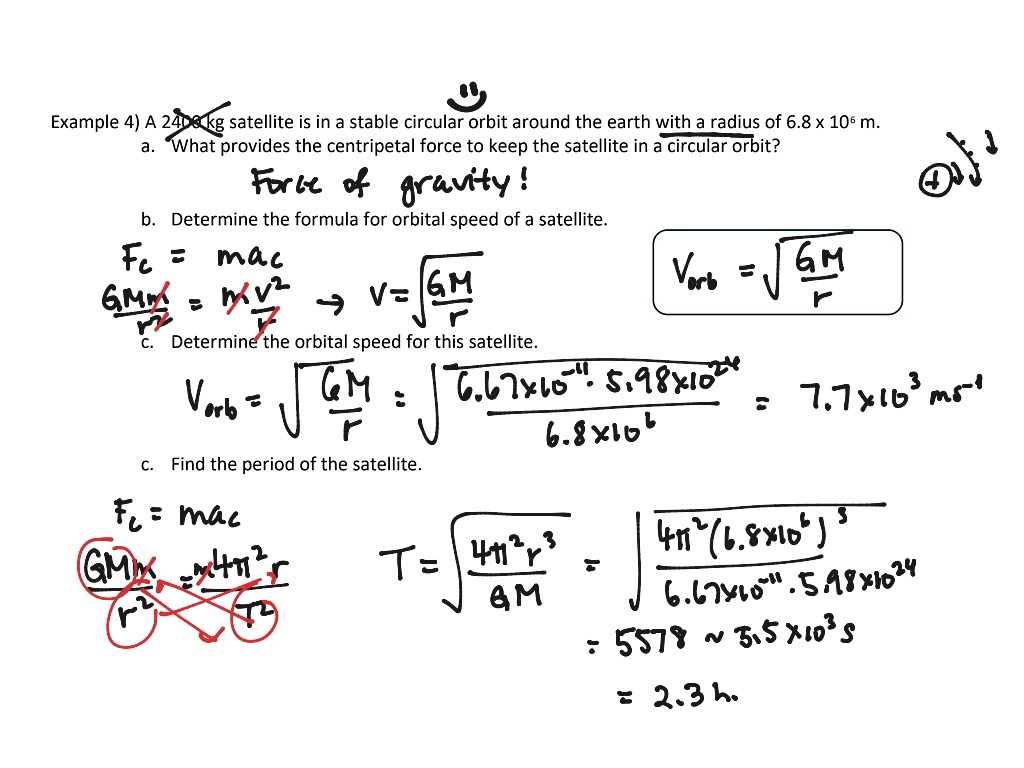 Example 4) A 2400 kg satellite is in a stable circular orbit around the earth with a radius of 6.8 x 10⁶ m.
a. What provides the centripetal force to keep the satellite in a circular orbit?
Force of gravity!
b. Determine the formula for orbital speed of a satellite.
Fc = mac
GMm/r² = mv²/r → v = √(GM/r)
Vorb = √(GM/r)
c. Determine the orbital speed for this satellite.
Vorb = √(GM/r) = √(6.67x10⁻¹¹ · 5.98x10²⁴ / 6.8x10⁶) = 7.7x10³ ms⁻¹
c. Find the period of the satellite.
Fc = mac
GMm/r² = m4π²r/T²
T = √(4π²r³/GM) = √(4π²(6.8x10⁶)³ / 6.67x10⁻¹¹ · 5.98x10²⁴)
= 5578 ~ 5.5x10³ s
= 2.3 h.